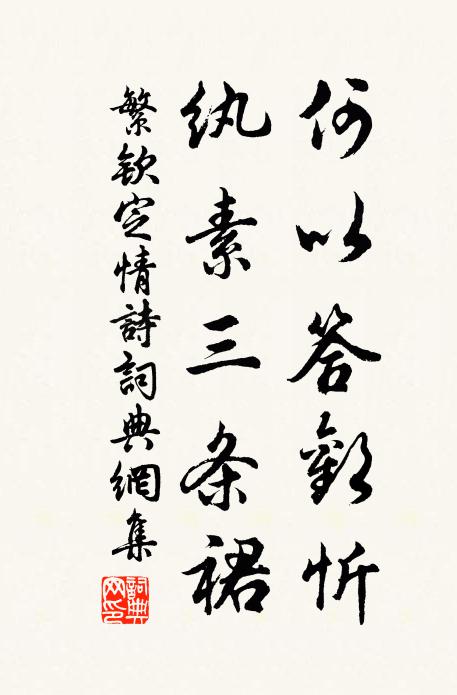 何以答歡忻
紈素三条裙
繁欽定情詩詞典網集
詞典
网印